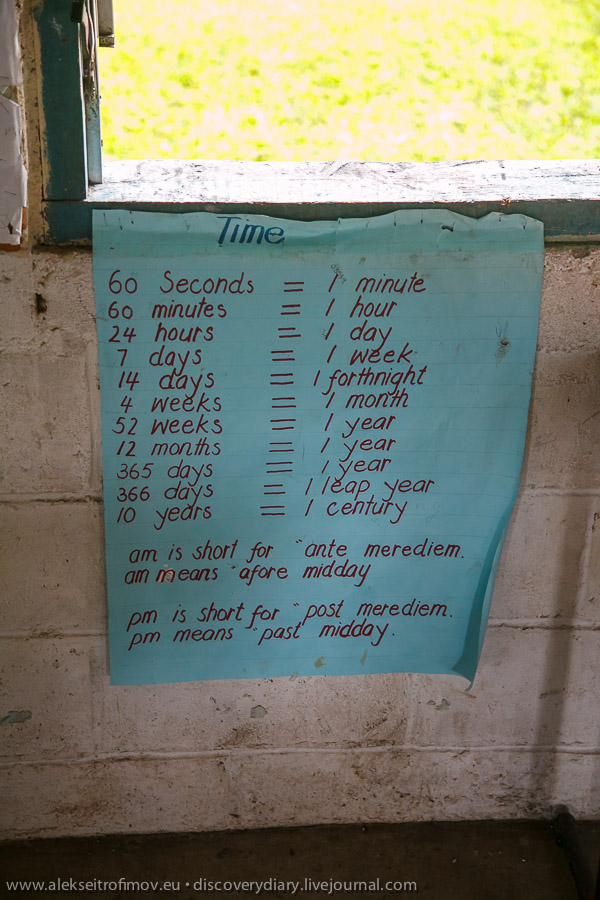 Time
60 Seconds = 1 minute
60 minutes = 1 hour
24 hours = 1 day
7 days = 1 week
14 days = 1 forthnight
4 weeks = 1 month
52 weeks = 1 year
12 months = 1 year
365 days = 1 year
366 days = 1 leap year
10 years = 1 century
am is short for "ante merediem.
am means "afore midday
pm is short for "post merediem.
pm means "past midday.
www.alekseitrofimov.eu • discoverydiary.livejournal.com